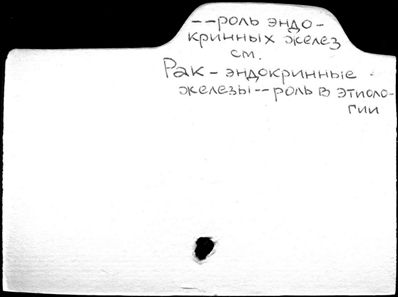 --роль эндо-
кринных желез
см.
Рак - эндокринные
железы -- роль в этиоло-
гии